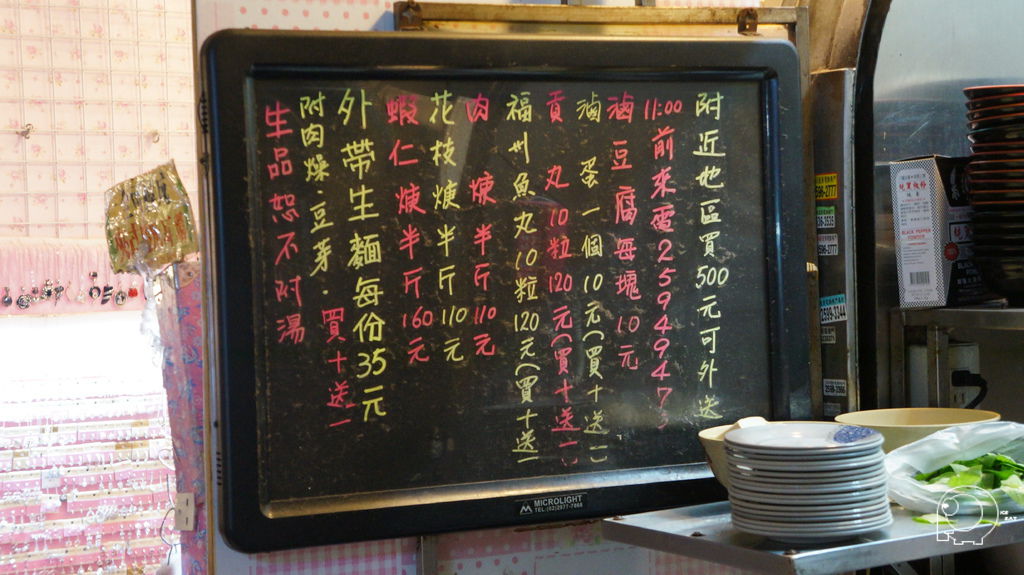 附近地區買500元可外送
11:00前來電25949473
滷豆腐每塊10元
滷蛋一個10元(買十送一)
貢丸10粒120元(買十送一)
福州魚丸10粒120元(買十送一
肉焿半斤110元
花枝焿半斤110元
蝦仁焿半斤160元
外帶生麵每份35元
附肉燥.豆芽.買十送一
生品恕不附湯
MICROLIGHT
TEL:(02)2977-7868
2599-3344
BLACK PEPPER
ICE
EAT